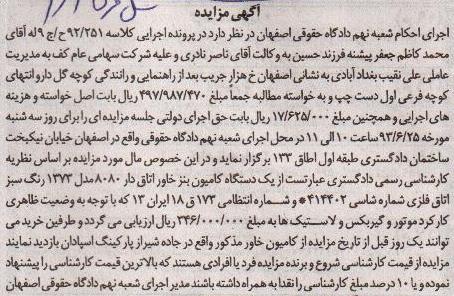 آگهی مزایده
اجرای احکام شعبه نهم دادگاه حقوقی اصفهان در نظر دارد در پرونده اجرایی کلاسه ۹۲/۲۵۱ ح/ج ۹ له آقای
محمد کاظم جعفر پیشنه فرزند حسین به وکالت آقای ناصر نادری و علیه شرکت سهامی عام کف به مدیریت
عاملی علی نقیب بغداد آبادی به نشانی اصفهان خ هزار جریب بعد از راهنمایی و رانندگی کوچه گل دارو انتهای
کوچه فرعی اول دست چپ و به خواسته مطالبه جمعاً مبلغ ۴۹۷/۹۸۷/۴۷۰ ریال بابت اصل خواسته و هزینه
های اجرایی و همچنین مبلغ ۱۷/۶۲۵/۰۰۰ ریال بابت حق اجرای دولتی جلسه مزایده ای را برای روز سه شنبه
مورخه ۹۳/۶/۲۵ ساعت ۱۰ الی ۱۱ در محل اجرای شعبه نهم دادگاه حقوقی واقع در اصفهان خیابان نیکبخت
ساختمان دادگستری طبقه اول اطاق ۱۳۳ برگزار نماید و در این خصوص مال مورد مزایده بر اساس نظریه
کارشناسی رسمی دادگستری عبارتست از یک دستگاه کامیون بنز خاور اتاق دار ۸۰۸۰ مدل ۱۳۷۳ رنگ سبز
اتاق فلزی شماره شاسی ۴۱۴۴۰۲* و شماره انتظامی ۱۷۳ ق ۱۸ ایران ۱۳ که با توجه به وضعیت ظاهری
کارکرد موتور و گیربکس و لاستیک ها به مبلغ ۳۴۶/۰۰۰/۰۰۰ ریال ارزیابی می گردد و طرفین خرید می
توانند یک روز قبل از تاریخ مزایده از کامیون خاور مذکور واقع در جاده شیراز پارکینگ اسپادان بازدید نمایند
مزایده از قیمت کارشناسی شروع و برنده مزایده فرد یا افرادی هستند که بالاترین قیمت کارشناسی را پیشنهاد
نموده و یا ۱۰ درصد مبلغ کارشناسی را نقدا به همراه داشته باشند مدیر اجرای شعبه نهم دادگاه حقوقی اصفهان